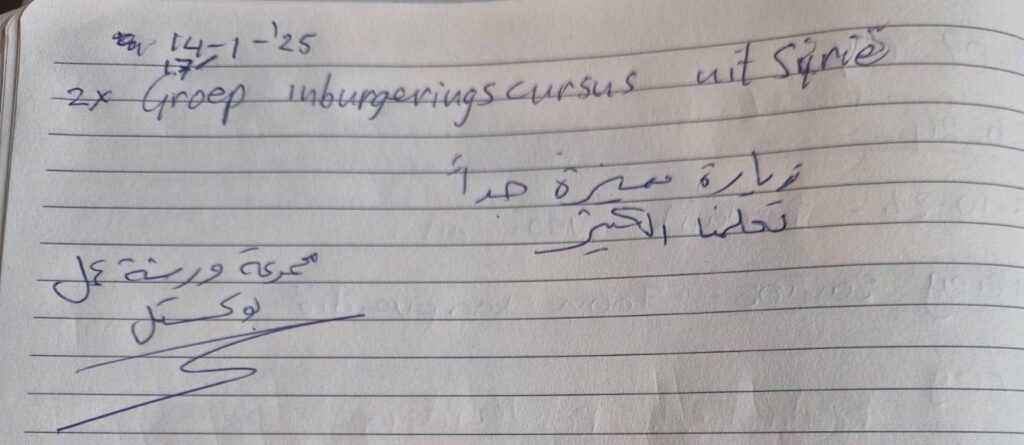 14-1-'25
17
2x Groep inburgeringscursus uit Syrië
زيارة مميزة جداً
تعلمنا الكثير
مجموعة ورشة عمل
بوكستل